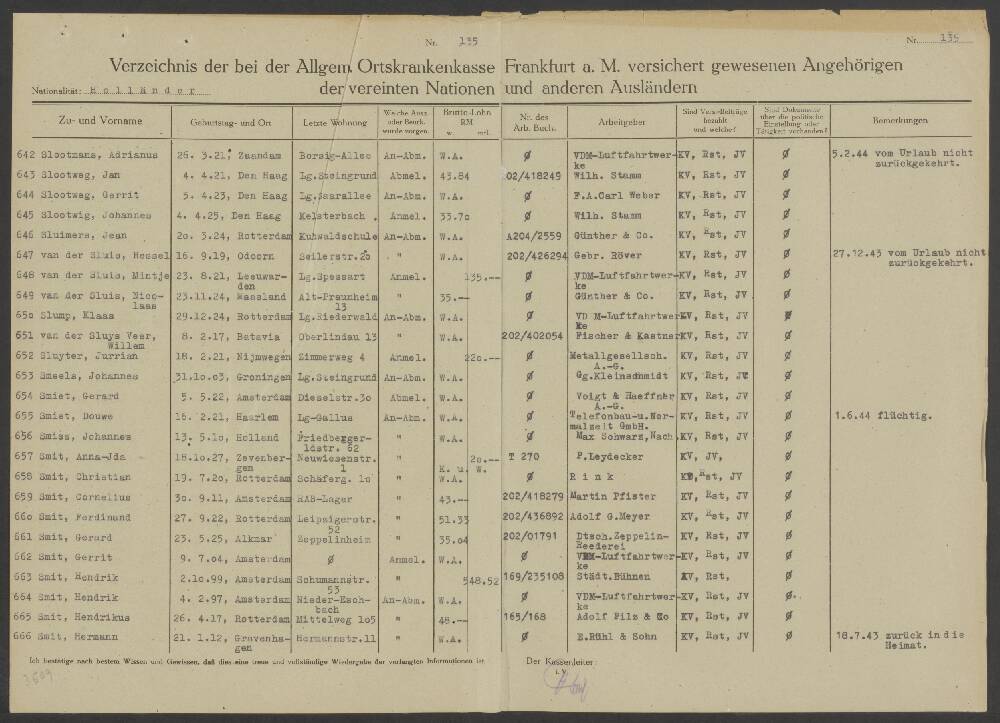 Nr. 135
Nr. 135
Verzeichnis der bei der Allgem. Ortskrankenkasse Frankfurt a. M. versichert gewesenen Angehörigen
Nationalität: Holländer der vereinten Nationen und anderen Ausländern
Zu- und Vorname | Geburtstag- und Ort | Letzte Wohnung | Welche Ausz. oder Besch. wurde vorgen. | Brutto-Lohn RM w. mtl. | Nr. des Arb. Buch. | Arbeitgeber | Sind Vers.-Beiträge bezahlt und welche? | Sind Dokumente über die politische Einstellung oder Tätigkeit vorhanden? | Bemerkungen
642 Slootmans, Adrianus 26. 3.21, Zaandam Borsig-Allee An-Abm. W.A. Ø VDM-Luftfahrtwer- KV, Rst, JV Ø 5.2.44 vom Urlaub nicht
ke zurückgekehrt.
643 Slootweg, Jan 4. 4.21, Den Haag Lg.Steingrund Abmel. 43.84 02/418249 Wilh. Stamm KV, Rst, JV Ø
644 Slootweg, Gerrit 5. 4.23, Den Haag Lg.Saarallee An-Abm. W.A. Ø F.A.Carl Weber KV, Rst, JV Ø
645 Slootwig, Johannes 4. 4.25, Den Haag Kelsterbach Anmel. 33.70 Ø Wilh. Stamm KV, Rst, JV Ø
646 Sluimers, Jean 20. 3.24, Rotterdam Kuhwaldschule An-Abm. W.A. A204/2559 Günther & Co. KV, Rst, JV Ø
647 van der Sluis, Hessel 16. 9.19, Odoorn Seilerstr.20 " W.A. 202/426294 Gebr. Röver KV, Rst, JV Ø 27.12.43 vom Urlaub nicht
zurückgekehrt.
648 van der Sluis, Mintje 23. 8.21, Leeuwar- Lg.Spessart Anmel. 135.-- Ø VDM-Luftfahrtwer- KV, Rst, JV Ø
den ke
649 van der Sluis, Nico- 23.11.24, Maasland Alt-Praunheim " 35.-- Ø Günther & Co. KV, Rst, JV Ø
laas 13
650 Slump, Klaas 29.12.24, Rotterdam Lg.Riederwald An-Abm. W.A. Ø VD M-Luftfahrtwer KV, Rst, JV Ø
ke
651 van der Sluys Veer, 8. 2.17, Batavia Oberlindau 13 " W.A. 202/402054 Fischer & Kastner KV, Rst, JV Ø
Willem
652 Sluyter, Jurrian 18. 2.21, Nijmwegen Zimmerweg 4 Anmel. 220.-- Ø Metallgesellsch. KV, Rst, JV Ø
A.-G.
653 Smeels, Johannes 31.10.03, Groningen Lg.Steingrund An-Abm. W.A. Ø Gg.Kleinschmidt KV, Rst, JV Ø
654 Smiet, Gerard 5. 5.22, Amsterdam Dieselstr.30 Abmel. W.A. Ø Voigt & Haeffner KV, Rst, JV Ø
A.-G.
655 Smiet, Douwe 16. 2.21, Haarlem Lg-Gallus An-Abm. W.A. Ø Telefonbau-u.Nor- KV, Rst, JV Ø 1.6.44 flüchtig.
malzeit GmbH.
656 Smiss, Johannes 13. 5.10, Holland Friedberger- " W.A. Ø Max Schwarz,Nach. KV, Rst, JV Ø
ldstr. 62
657 Smit, Anna-Jda 18.10.27, Zevenber- Neuwiesenstr. " 20.-- T 270 P.Leydecker KV, JV, Ø
gen 1 K. u. W.
658 Smit, Christian 19. 7.20, Rotterdam Schäferg. 10 " W.A. Ø R i n k KV, Rst, JV Ø
659 Smit, Cornelius 30. 9.11, Amsterdam RAB-Lager " 43.-- 202/418279 Martin Pfister KV, Rst, JV Ø
660 Smit, Ferdinand 27. 9.22, Rotterdam Leipzigerstr. " 51.33 202/436892 Adolf G.Meyer KV, Rst, JV Ø
52
661 Smit, Gerard 23. 5.25, Alkmar Zeppelinheim " 35.04 202/01791 Dtsch.Zeppelin- KV, Rst, JV Ø
Reederei
662 Smit, Gerrit 9. 7.04, Amsterdam Ø Anmel. W.A. Ø VDM-Luftfahrtwer- KV, Rst, JV Ø
ke
663 Smit, Hendrik 2.10.99, Amsterdam Schumannstr. " 548.52 169/235108 Städt.Bühnen KV, Rst, Ø
53
664 Smit, Hendrik 4. 2.97, Amsterdam Nieder-Esch- An-Abm. W.A. Ø VDM-Luftfahrtwer- KV, Rst, JV Ø.
bach ke
665 Smit, Hendrikus 26. 4.17, Rotterdam Mittelweg 105 " 48.-- 165/168 Adolf Pilz & Co KV, Rst, JV Ø
666 Smit, Hermann 21. 1.12, Gravenha- Hermannstr.11 " W.A. Ø E.Rühl & Sohn KV, Rst, JV Ø 18.7.43 zurück in die
gen Heimat.
Ich bestätige nach bestem Wissen und Gewissen, daß dies eine treue und vollständige Wiedergabe der verlangten Informationen ist. Der Kassenleiter:
i.V.